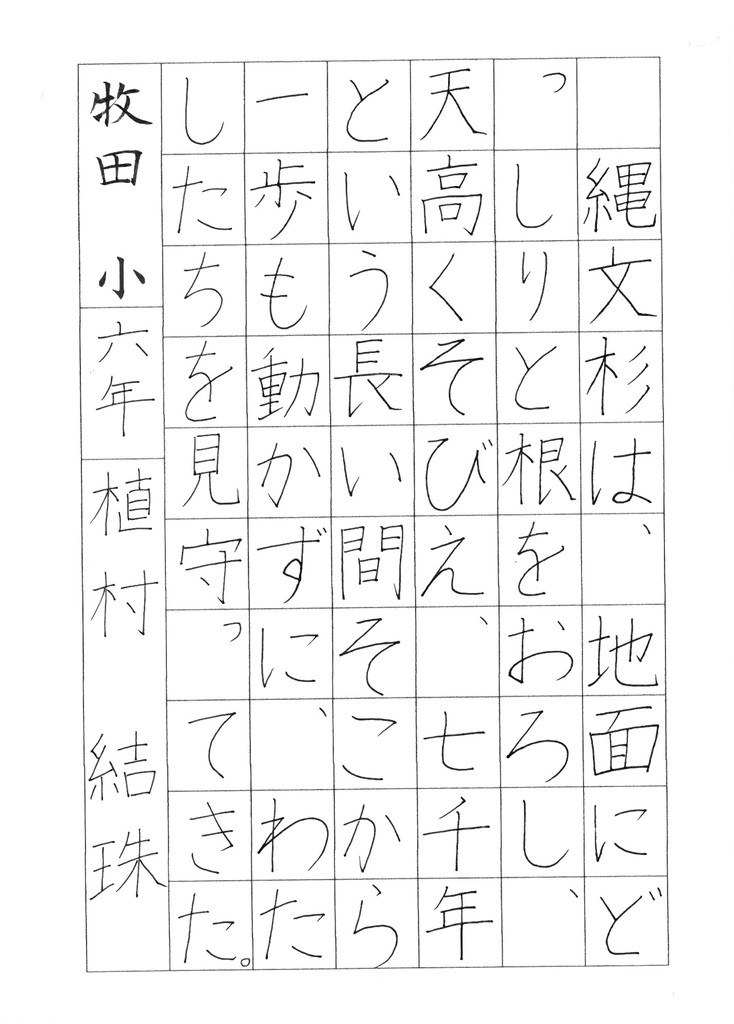 縄文杉は、地面にど
っしりと根をおろし、
天高くそびえ、七千年
という長い間そこから
一歩も動かずに、わた
したちを見守ってきた。
牧田小 六年 植村 結珠